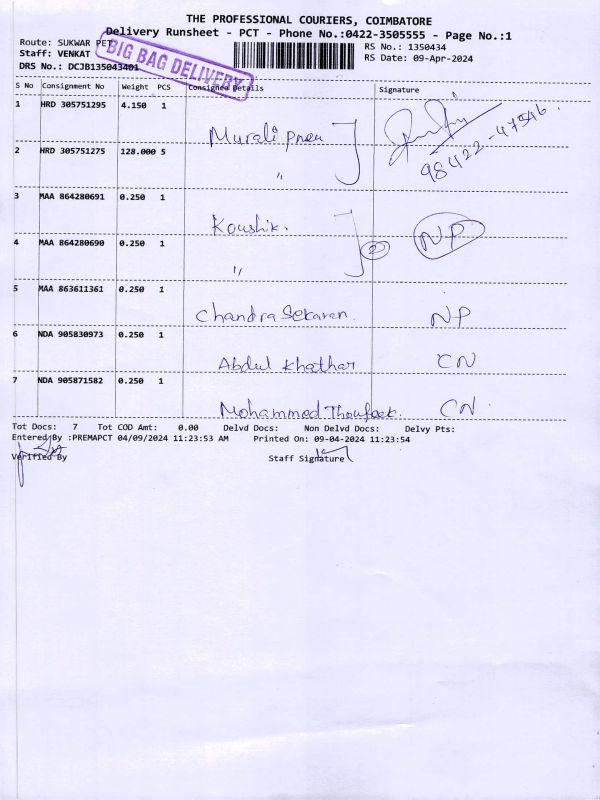 THE PROFESSIONAL COURIERS, COIMBATORE
Delivery Runsheet - PCT - Phone No.:0422-3505555 - Page No.:1
Route: SUKWAR PET
RS No.: 1350434
Staff: VENKAT
RS Date: 09-Apr-2024
DRS No.: DCJB135043401
BIG BAG DELIVERY
S No Consignment No Weight PCS Consigned Details Signature
1 HRD 305751295 4.150 1
Murali
98422-47546
2 HRD 305751275 128.000 5
"
3 MAA 864280691 0.250 1
Koushik. NP
4 MAA 864280690 0.250 1
" 2
5 MAA 863611361 0.250 1
Chandra Sekaran. NP
6 NDA 905830973 0.250 1
Abdul Khathar CN
7 NDA 905871582 0.250 1
Mohammed Thoufeek. CN
Tot Docs: 7 Tot COD Amt: 0.00 Delvd Docs: Non Delvd Docs: Delvy Pts:
Entered By :PREMAPCT 04/09/2024 11:23:53 AM Printed On: 09-04-2024 11:23:54
Verified By Staff Signature